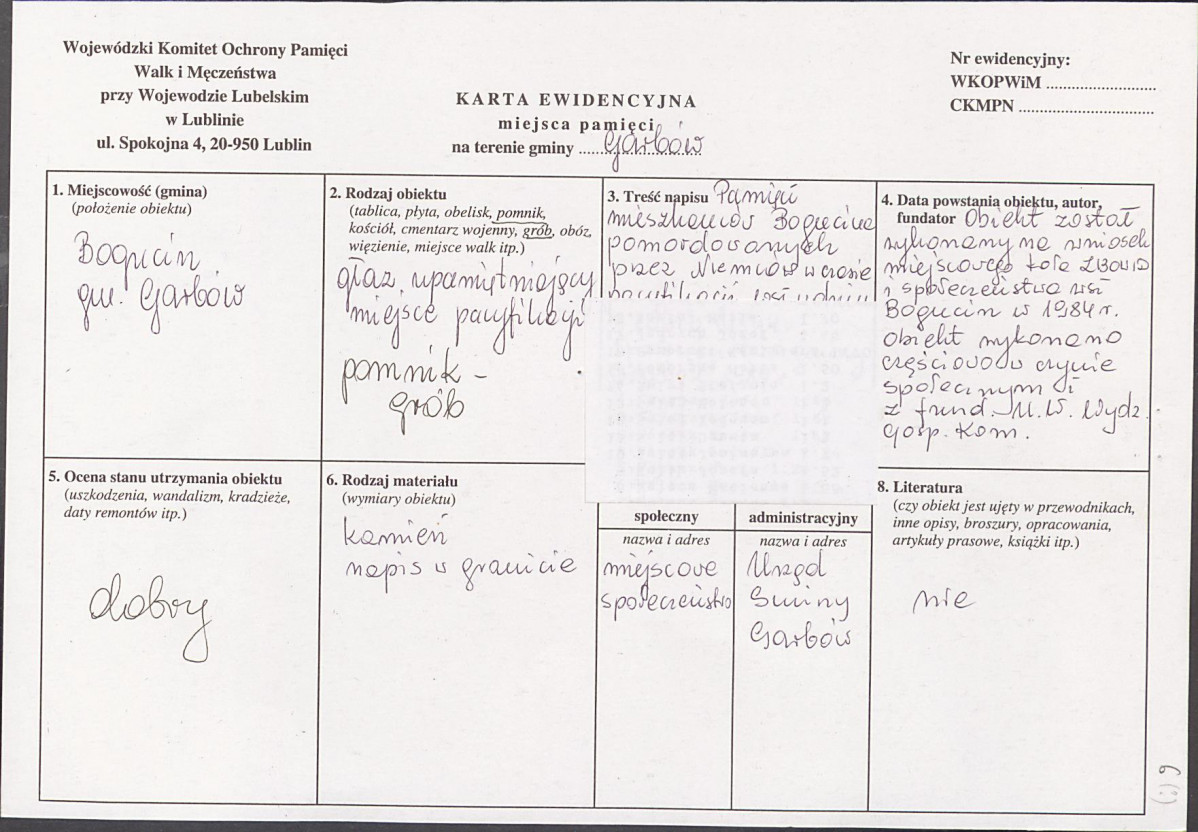 Wojewódzki Komitet Ochrony Pamięci
Walk i Męczeństwa
przy Wojewodzie Lubelskim
w Lublinie
ul. Spokojna 4, 20-950 Lublin
KARTA EWIDENCYJNA
miejsca pamięci
na terenie gminy ...... Garbów
Nr ewidencyjny:
WKOPWiM ............................
CKMPN ..................................
1. Miejscowość (gmina)
(położenie obiektu)
Bogucin
gm. Garbów
2. Rodzaj obiektu
(tablica, płyta, obelisk, pomnik,
kościół, cmentarz wojenny, grób, obóz,
więzienie, miejsce walk itp.)
głaz upamiętniający
miejsce pacyfikacji
pomnik –
grób
3. Treść napisu Pamięci
mieszkańców Bogucina
pomordowanych
przez Niemców w czasie
pacyfikacji
4. Data powstania obiektu, autor,
fundator Obiekt został
wykonany na wniosek
miejscowego koła ZBOWID
i społeczeństwa wsi
Bogucin w 1984 r.
obiekt wykonano
częściowo w czynie
społecznym i
z fund. U.W. Wydz.
Gosp. Kom.
5. Ocena stanu utrzymania obiektu
(uszkodzenia, wandalizm, kradzieże,
daty remontów itp.)
dobry
6. Rodzaj materiału
(wymiary obiektu)
kamień
napis w granicie
społeczny
nazwa i adres
miejscowe
społeczeństwo
administracyjny
nazwa i adres
Urząd
Gminy
Garbów
8. Literatura
(czy obiekt jest ujęty w przewodnikach,
inne opisy, broszury, opracowania,
artykuły prasowe, książki itp.)
nie